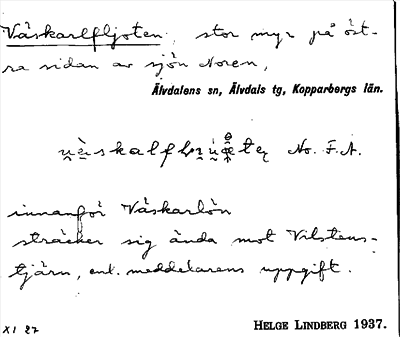 Väskarlfljoten, stor myr på öst-
ra sidan av sjön Noren,
Älvdalens sn, Älvdals tg, Kopparbergs län.
No. F. A.
innanför Väskarlön
sträcker sig ända mot Vilstens-
tjärn, enl. meddelarens uppgift.
XI 27
HELGE LINDBERG 1937.